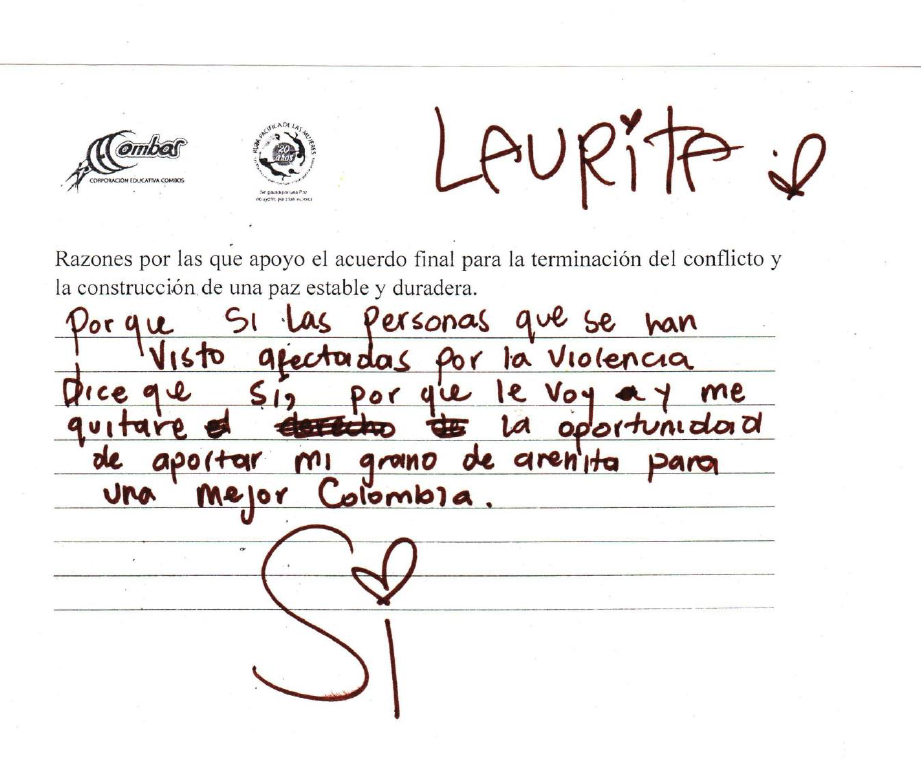 Combos
CORPORACIÓN EDUCATIVA COMBOS
RUTA PACÍFICA DE LAS MUJERES
20 años
LAURITA
Razones por las que apoyo el acuerdo final para la terminación del conflicto y
la construcción de una paz estable y duradera.
Por que Si las personas que se han
Visto afectadas por la Violencia
Dice que Si, por que le voy a y me
quitare el derecho de la oportunidad
de aportar mi grano de arenita para
una mejor Colombia.
Si